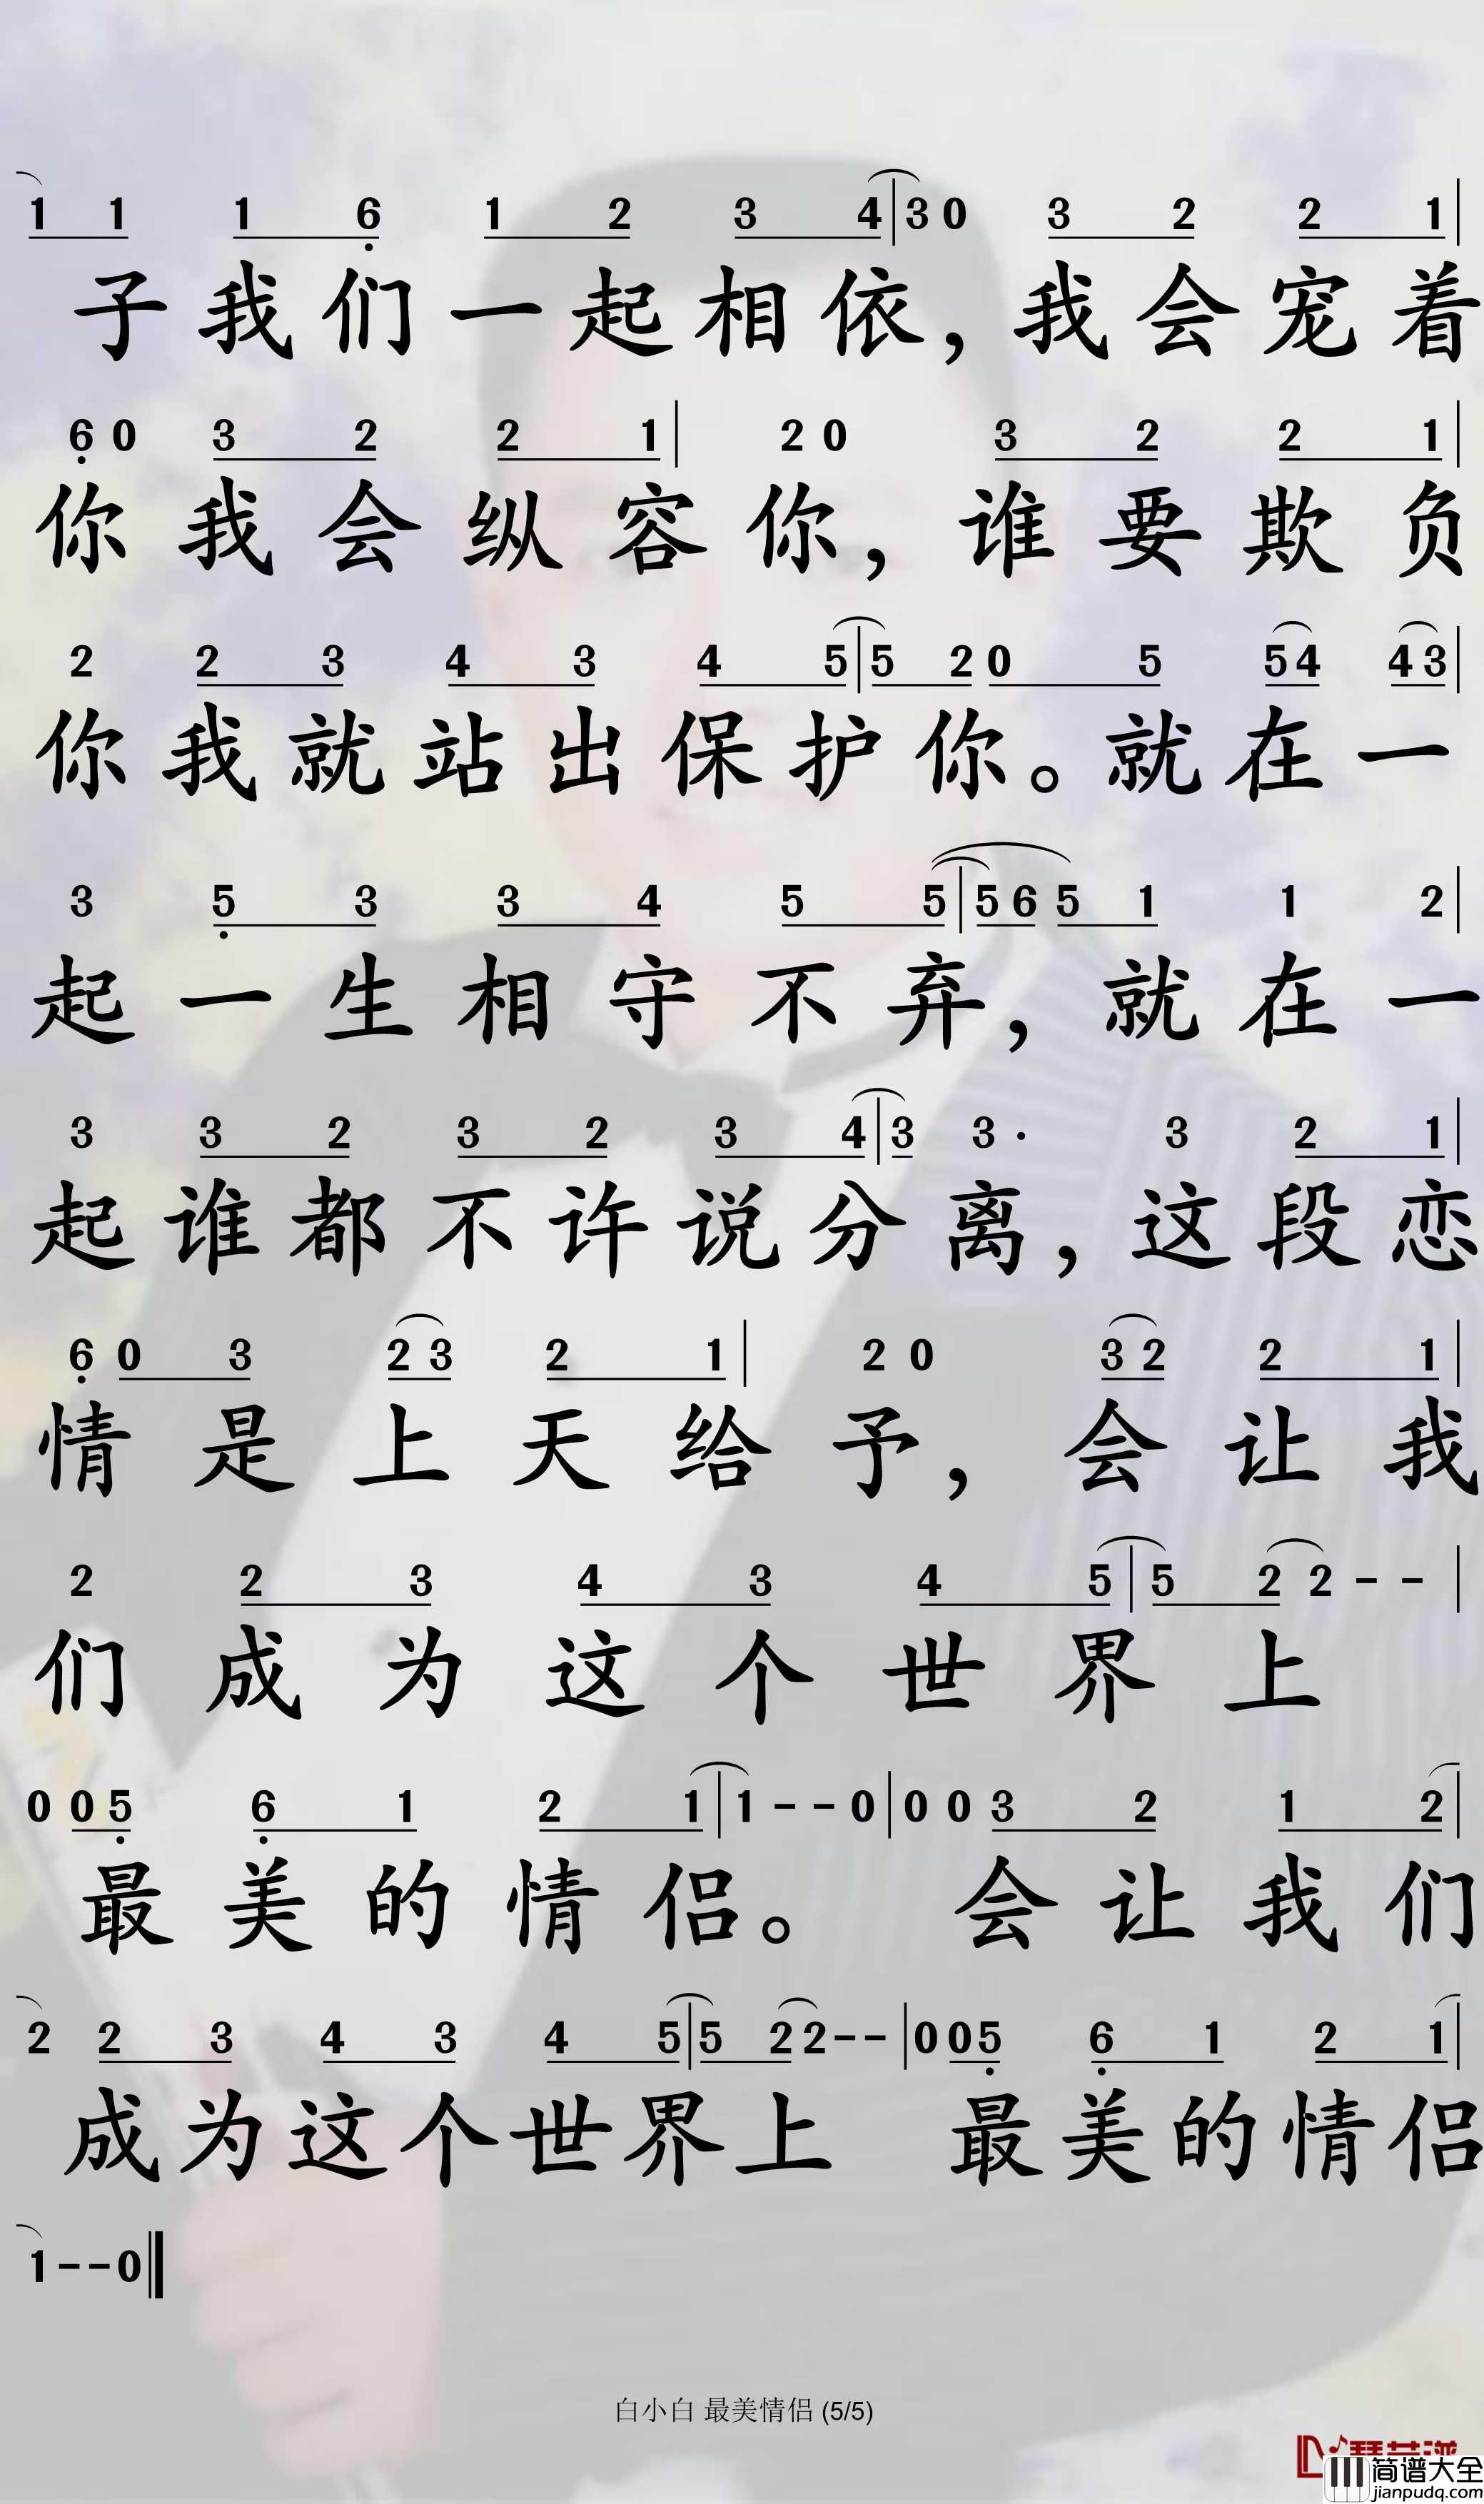 1 1 1 6 1 2 3 4 | 3 0 3 2 2 1 |
子我们一起相依，我会宠着
6 0 3 2 2 1 | 2 0 3 2 2 1 |
你我会纵容你，谁要欺负
2 2 3 4 3 4 5 | 5 2 0 5 5 4 4 3 |
你我就站出保护你。就在一
3 5 3 3 4 5 5 | 5 6 5 1 1 2 |
起一生相守不弃，就在一
3 3 2 3 2 3 4 | 3 3 · 3 2 1 |
起谁都不许说分离，这段恋
6 0 3 2 3 2 1 | 2 0 3 2 2 1 |
情是上天给予，会让我
2 2 3 4 3 4 5 | 5 2 2 - - |
们成为这个世界上
0 0 5 6 1 2 1 | 1 - - 0 | 0 0 3 2 1 2 |
最美的情侣。会让我们
2 2 3 4 3 4 5 | 5 2 2 - - | 0 0 5 6 1 2 1 |
成为这个世界上 最美的情侣
1 - - 0 ‖
白小白 最美情侣 (5/5)
简谱大全
jianpudq.com